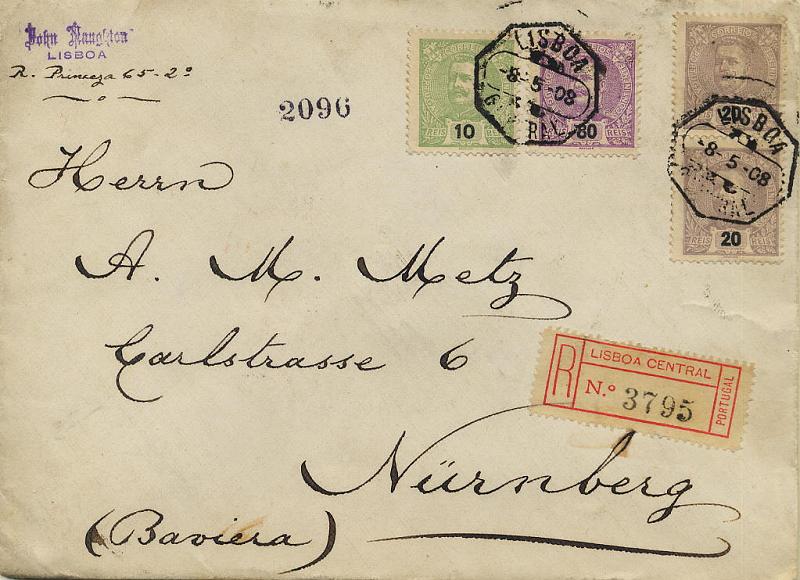 John Naughton
LISBOA
R. Princeza 65-2º
2096
CORREIO
10
REIS
80
REIS
LISBOA
-8-5-08
CENTRAL
20
LISBOA
-8-5-08
CENTRAL
REIS
20
Herrn
A. M. Metz
Carlstrasse 6
R
LISBOA CENTRAL
N.º 3795
PORTUGAL
Nürnberg
(Baviera)